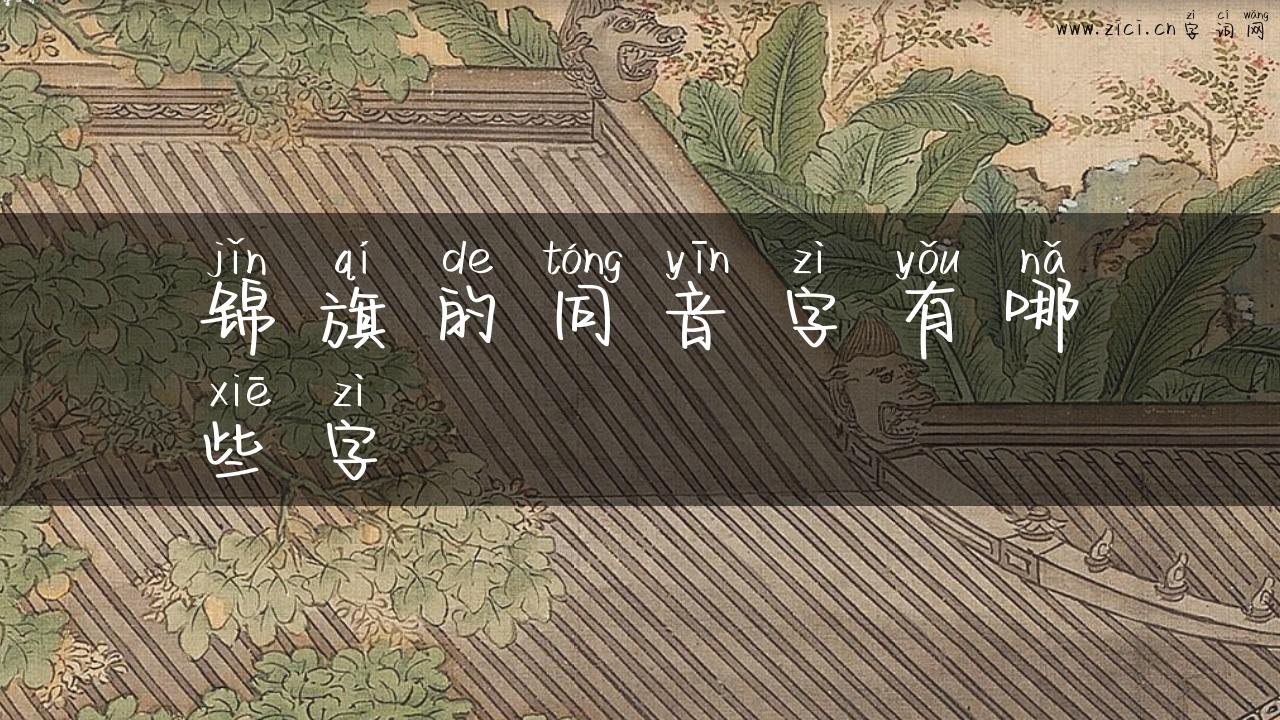 zì cí wǎng
www.zici.cn 字词网
jǐn qí de tóng yīn zì yǒu nǎ
锦旗的同音字有哪
xiē zì
些字